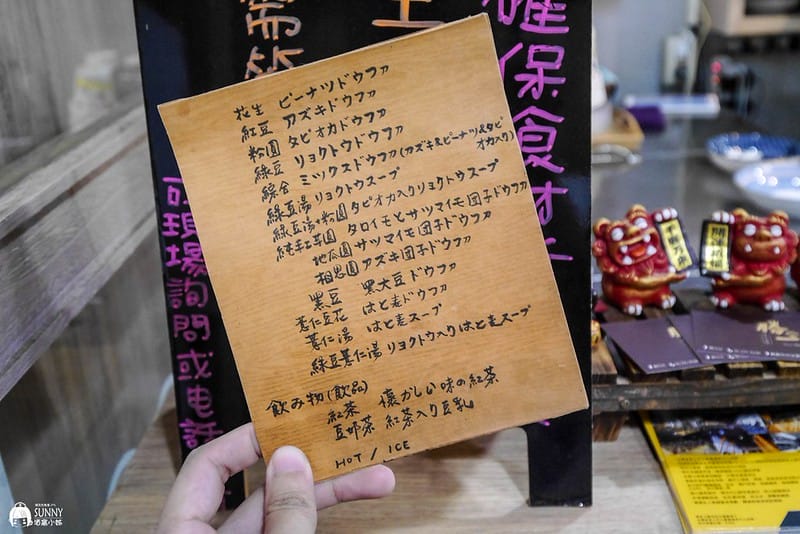 花生 ピーナツドウファ
紅豆 アズキドウファ
粉圓 タピオカドウファ
綠豆 リョクトウドウファ
綜合 ミックスドウファ(アズキ&ピーナツ&タピオカ入り)
綠豆湯 リョクトウスープ
綠豆湯+粉圓 タピオカ入りリョクトウスープ
純手工芋圓 タロイモとサツマイモ団子ドウファ
地瓜圓 サツマイモ団子ドウファ
相思圓 アズキ団子ドウファ
黑豆 黑大豆ドウファ
薏仁豆花 はと麦ドウファ
薏仁湯 はと麦スープ
綠豆薏仁湯 リョクトウ入りはと麦スープ
飲み物(飲品)
紅茶 懐かしい味の紅茶
豆奶茶 紅茶入り豆乳
HOT / ICE
確保食材
可現場詢問或電話
SUNNY